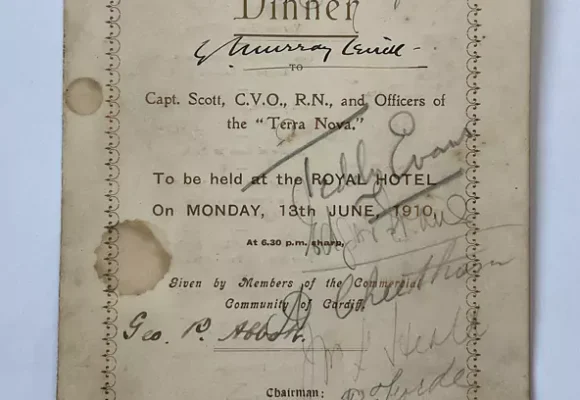 Dinner
Murray Levick
TO
Capt. Scott, C.V.O., R.N., and Officers of
the "Terra Nova."
Teddy Evans
To be held at the ROYAL HOTEL
On MONDAY, 13th JUNE, 1910,
At 6.30 p.m. sharp,
Given by Members of the Commercial
Cheetham
Community of Cardiff.
Geo. P. Abbott.
Chairman: